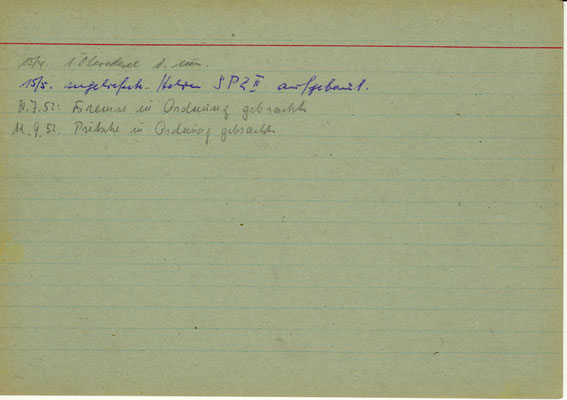 15/4. 1 Ölwechsel
15/5. angeliefert. SPZ II aufgebaut.
31.7.52: Bremse in Ordnung gebracht
11.9.52. Pritsche in Ordnung gebracht